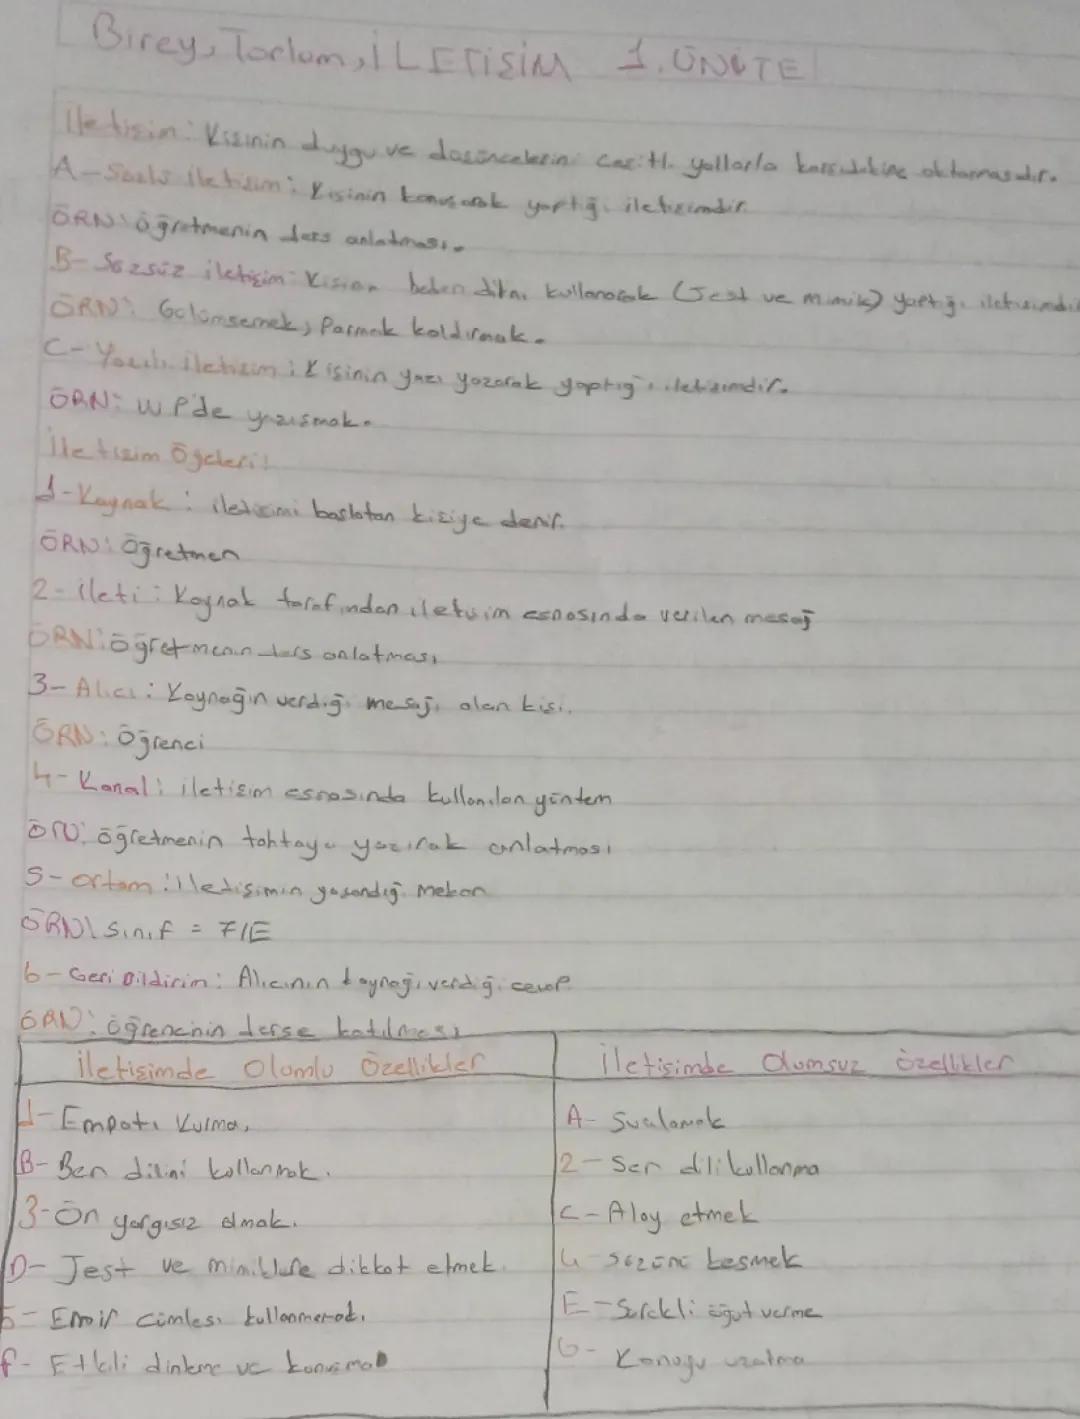 Birey, Toplum, İLETİŞİM 1. ÜNİTE
İletişim: Kişinin duygu ve düşüncelerini çeşitli yollarla karşıdakine aktarmasıdır.
A- Sözlü iletişim: Kişinin konuşarak yaptığı iletişimdir.
ÖRN: öğretmenin ders anlatması.
B- Sözsüz iletişim: Kişinin beden dilini kullanarak (Jest ve mimik) yaptığı iletişimdir
ÖRN: Gülümsemek, Parmak kaldırmak.
C- Yazılı iletişim: Kişinin yazı yazarak yaptığı iletişimdir.
ÖRN: WP'de yazışmak.
İletişim Öğeleri:
1- Kaynak: iletişimi başlatan kişiye denir.
ÖRN: Öğretmen
2- ileti: Kaynak tarafından iletişim esnasında verilen mesaj
ÖRN: öğretmenin ders anlatması
3- Alıcı: Kaynağın verdiği mesajı alan kişi.
ÖRN: Öğrenci
4- Kanal: iletişim esnasında kullanılan yöntem
ÖRN: öğretmenin tahtaya yazarak anlatması
5- Ortam: İletişimin yaşandığı mekan
ÖRN: Sınıf = 7/E
6- Geri Bildirim: Alıcının kaynağı verdiği cevap.
ÖRN: öğrencinin derse katılması
İletişimde Olumlu Özellikler
1- Empati Kurma.
B- Ben dilini kullanmak.
3- Ön yargısız olmak.
D- Jest ve mimiklere dikkat etmek.
5- Emir cümlesi kullanmamak.
F- Etkili dinleme ve konuşma
İletişimde Olumsuz Özellikler
A- Suçlamak
2- Sen dili kullanma
C- Alay etmek
4- sözünü kesmek
E- Sürekli öğüt verme
6- Konuyu uzatma